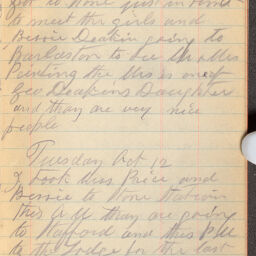 got to Stone just in time
to meet the girls and
Bessie Deakin going to
Barlaston to see Mr & Mrs
Pointing the Mrs is one of
Geo Deakins Daughter
and than are very nice
people
Tuesday Oct 12
I took Miss Price and
Bessie to Stone Station
this A M than are going
to Stafford and this P M
to the Lodge for the last